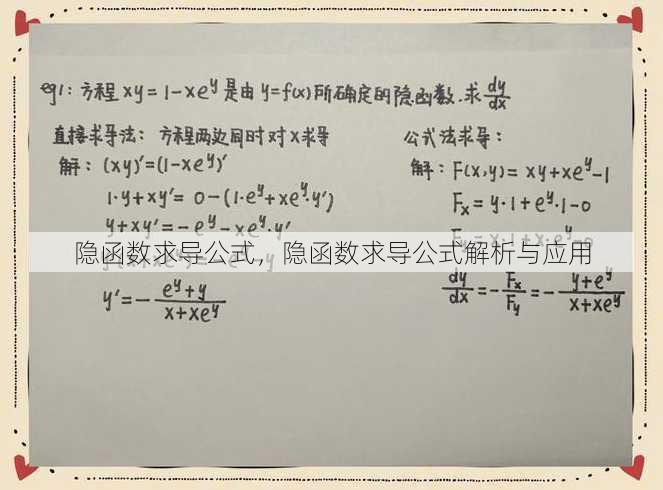 eg1: 方程 xy = 1-xe^y 是由 y=f(x) 所确定的隐函数. 求 dy/dx
直接求导法: 方程两边同时对 x 求导
解: (xy)'=(1-xe^y)'
1·y+xy'= 0-(1·e^y+xe^y·y')
y+xy'=-e^y-xe^y·y'
y'=-(e^y+y)/(x+xe^y)
公式法求导:
解: F(x,y)= xy+xe^y-1
F_x = y·1+e^y·1-0
dy/dx = -F_x/F_y = -(y+e^y)/(x+xe^y)
隐函数求导公式，隐函数求导公式解析与应用